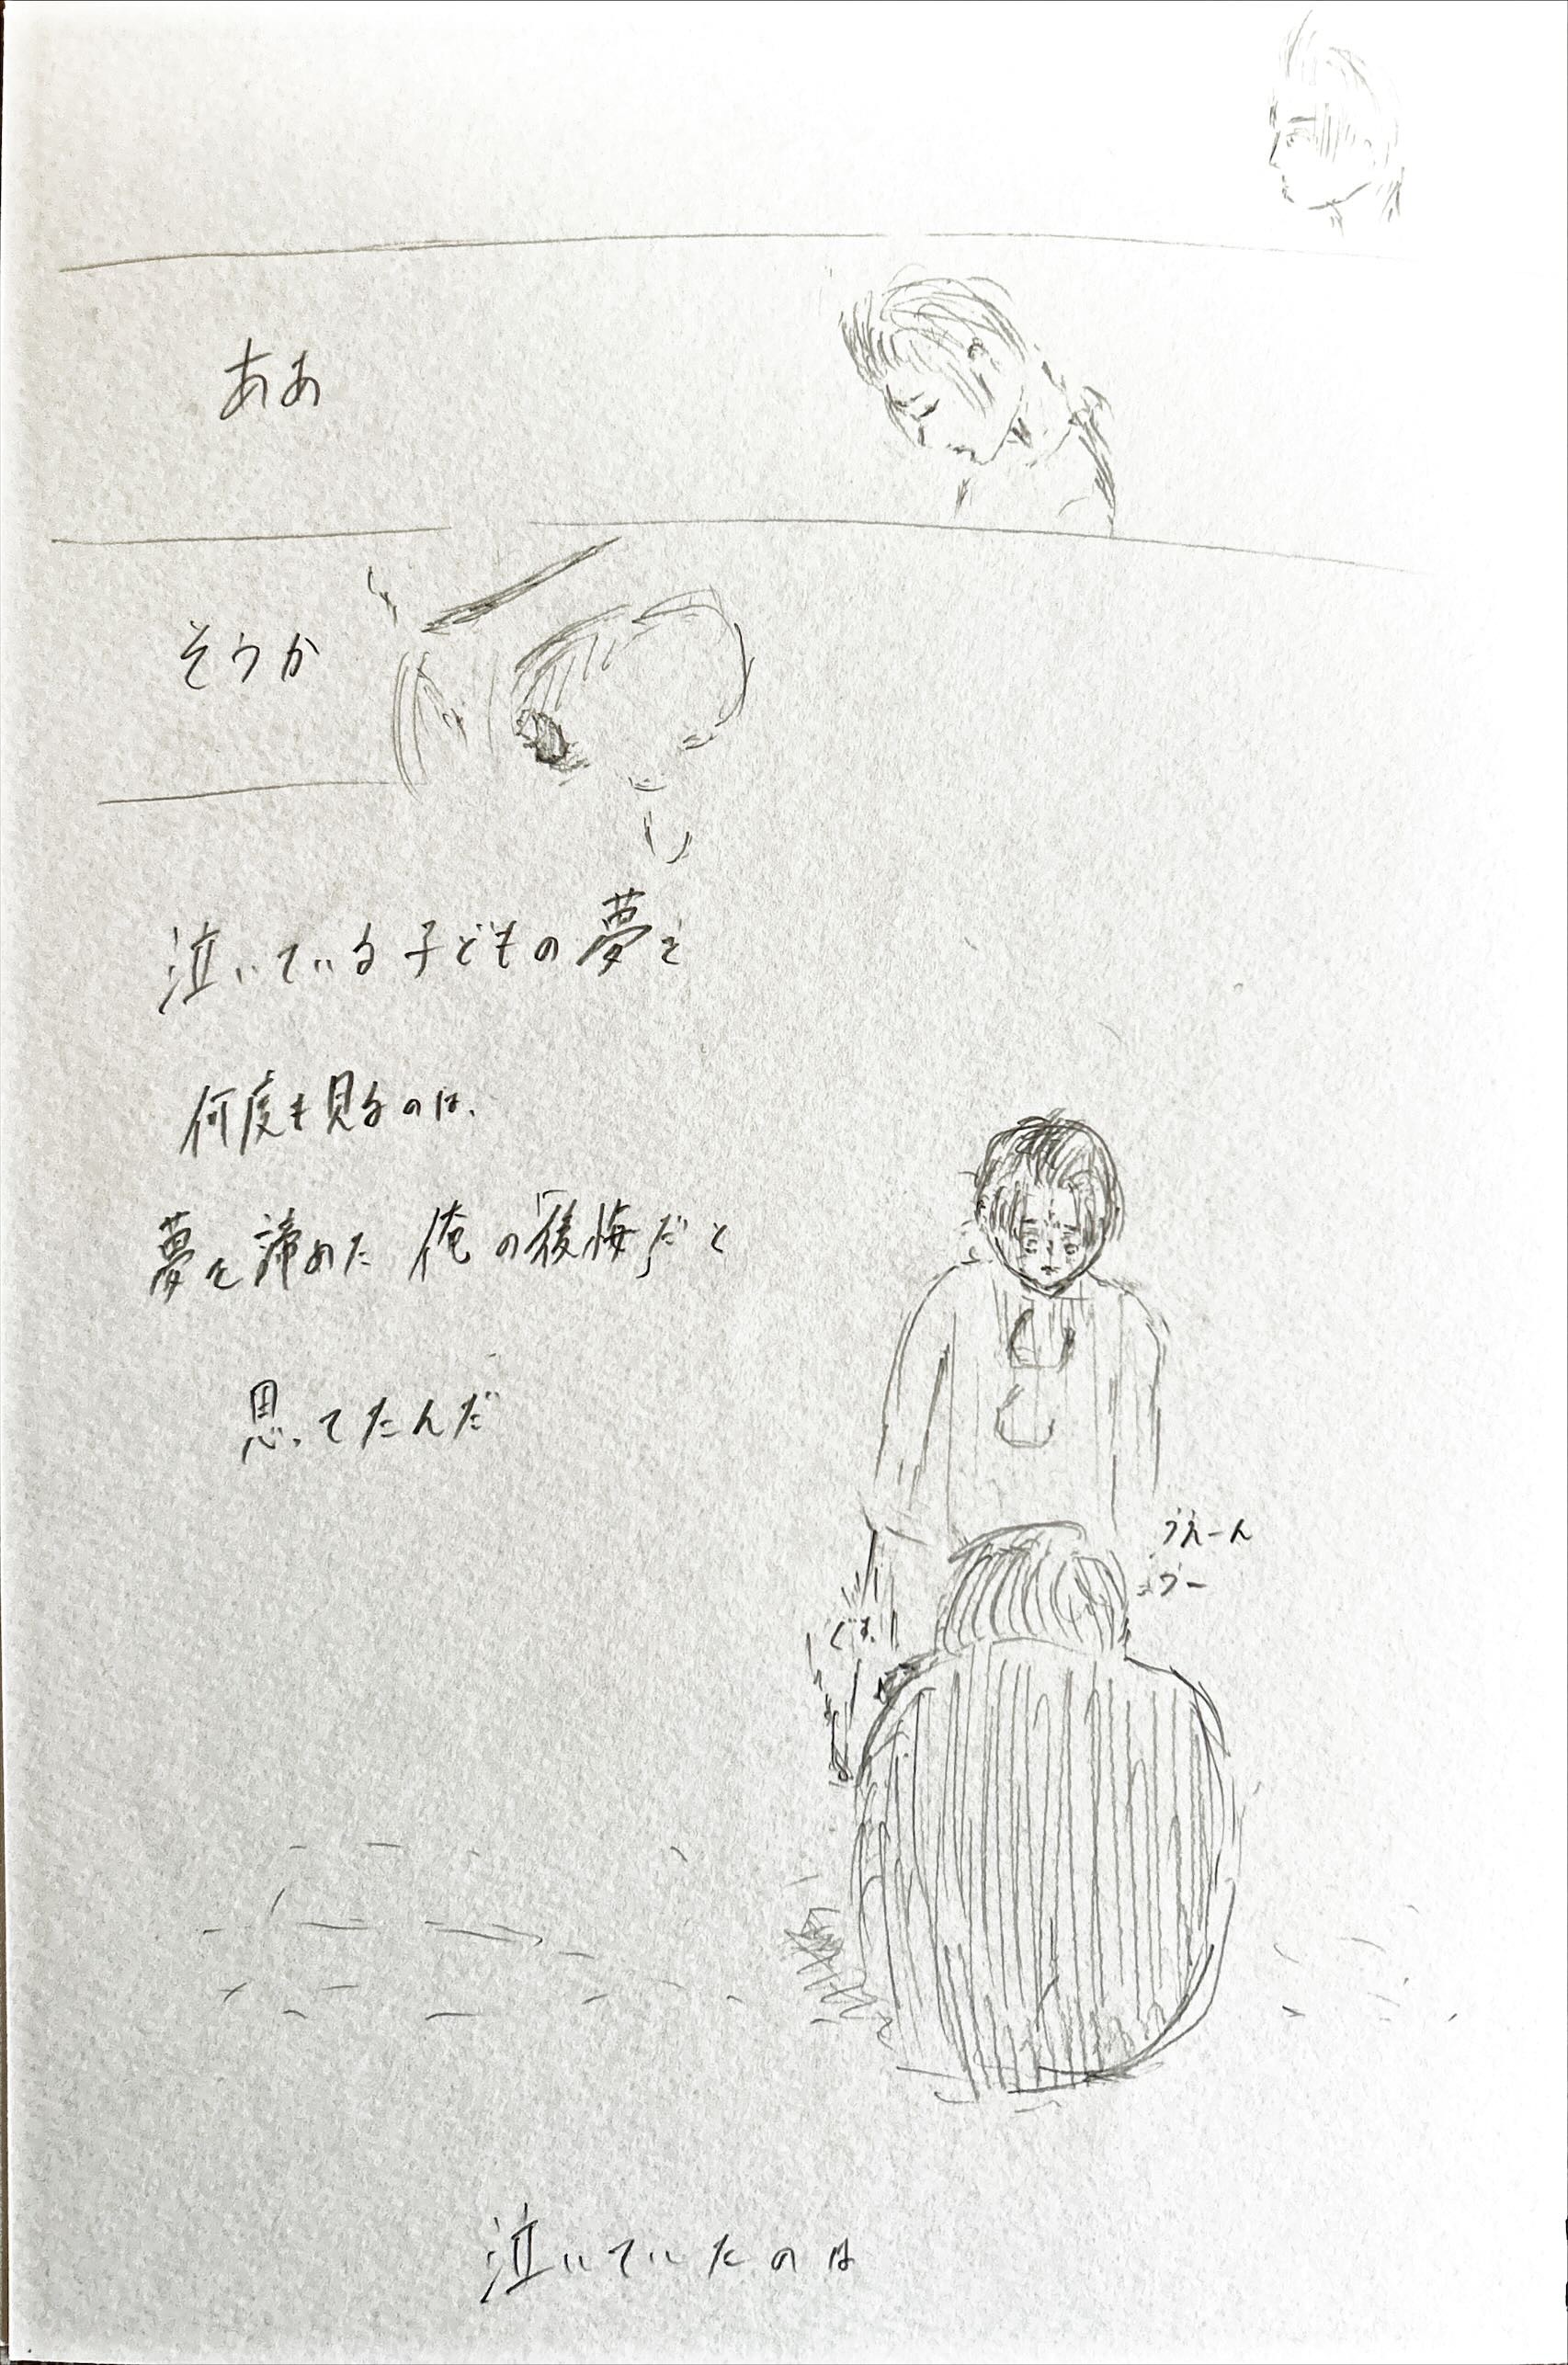 ああ
そうか
泣いている子どもの夢を
何度も見るのは、
夢を諦めた俺の「後悔」だと
思ってたんだ
うえーん
うー
泣いていたのは